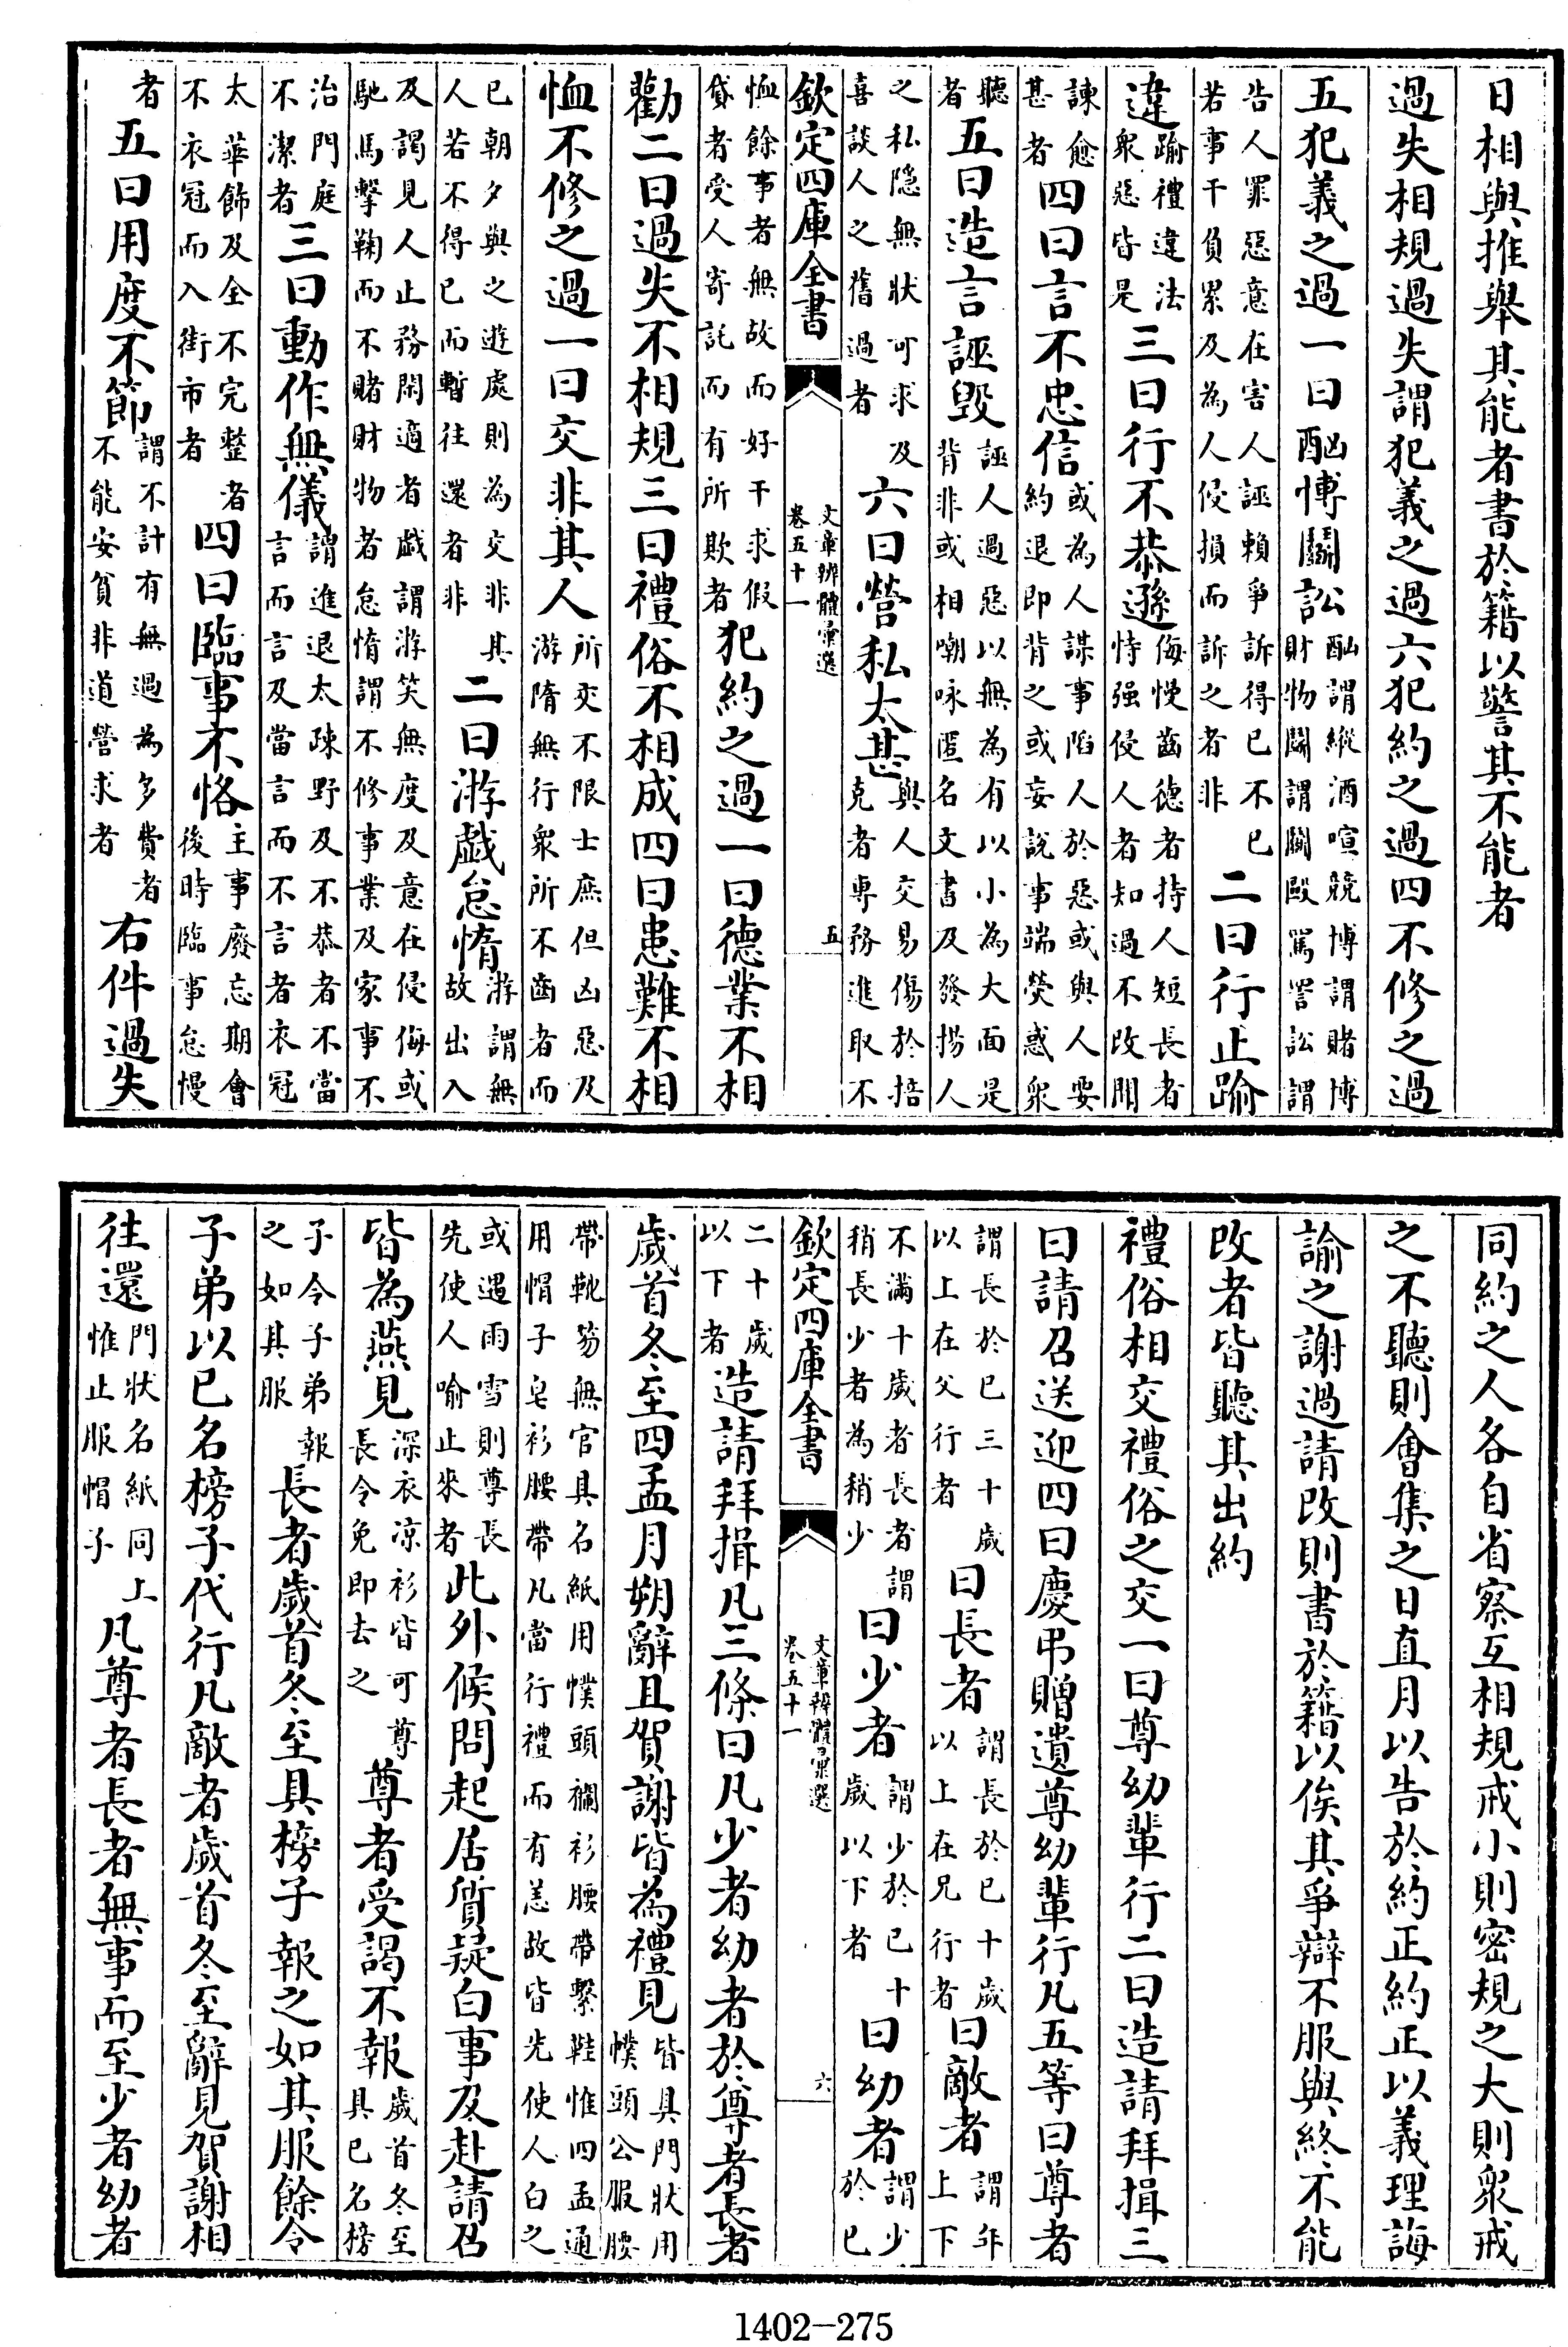 日相與推舉其能者書於籍以警其不能者
過失相規過失謂犯義之過六犯約之過四不修之過
五犯義之過一曰酗博鬭訟酗謂縱酒喧競博謂賭博財物鬭謂鬭毆罵詈訟謂
告人罪惡意在害人誣賴爭訴得已不已若事干負累及為人侵損而訴之者非二曰行止踰
違踰禮違法衆惡皆是三曰行不恭遜侮慢齒德者持人短長者恃强侵人者知過不改聞
諫愈甚者四曰言不忠信或為人謀事陷人於惡或與人要約退即背之或妄說事端熒惑衆
聽者五曰造言誣毀誣人過惡以無為有以小為大面是背非或相嘲咏匿名文書及發揚人
之私隱無狀可求及喜談人之舊過者六曰營私太甚與人交易傷於掊克者專務進取不
欽定四庫全書 文章辨體彙選卷五十一 五
恤餘事者無故而好干求假貸者受人寄託而有所欺者犯約之過一曰德業不相
勸二曰過失不相規三曰禮俗不相成四曰患難不相
恤不修之過一曰交非其人所交不限士庶但凶惡及游惰無行衆所不齒者而
已朝夕與之遊處則為交非其人若不得已而暫往還者非二曰游戲怠惰游謂無故出入
及謁見人止務閑適者戲謂游笑無度及意在侵侮或馳馬擊鞠而不賭財物者怠惰謂不修事業及家事不
治門庭不潔者三曰動作無儀謂進退太疎野及不恭者不當言而言及當言而不言者衣冠
太華飾及全不完整者不衣冠而入街市者四曰臨事不恪主事廢忘期會後時臨事怠慢
者五曰用度不節謂不計有無過為多費者不能安貧非道營求者右件過失
同約之人各自省察互相規戒小則密規之大則衆戒
之不聽則會集之日直月以告於約正約正以義理誨
諭之謝過請改則書於籍以俟其爭辯不服與終不能
改者皆聽其出約
禮俗相交禮俗之交一曰尊幼輩行二曰造請拜揖三
曰請召送迎四曰慶弔贈遺尊幼輩行凡五等曰尊者
謂長於已三十歲以上在父行者曰長者謂長於已十歲以上在兄行者曰敵者謂年上下
不滿十歲者長者謂稍長少者為稍少曰少者謂少於已十歲以下者曰幼者謂少於已
欽定四庫全書 文章辨體彙選卷五十一 六
二十歲以下者造請拜揖凡三條曰凡少者幼者於尊者長者
歲首冬至四孟月朔辭且賀謝皆為禮見皆具門狀用幞頭公服腰
帶靴笏無官具名紙用幞頭襴衫腰帶繫鞋惟四孟通用帽子皂衫腰帶凡當行禮而有恙故皆先使人白之
或遇雨雪則尊長先使人喻止來者此外候問起居質疑白事及赴請召
皆為燕見深衣凉衫皆可尊長令免即去之尊者受謁不報歲首冬至具已名榜
子令子弟報之如其服長者歲首冬至具榜子報之如其服餘令
子弟以已名榜子代行凡敵者歲首冬至辭見賀謝相
往還門狀名紙同上惟止服帽子凡尊者長者無事而至少者幼者
1402-275